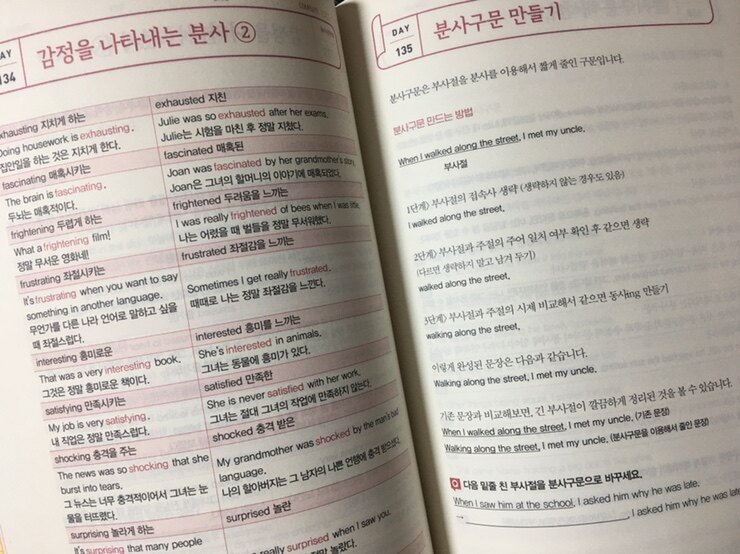 AY
134
감정을 나타내는 분사 ②
exhausting 지치게 하는
Doing housework is exhausting.
집안일을 하는 것은 지치게 한다.
exhausted 지친
Julie was so exhausted after her exams.
Julie는 시험을 마친 후 정말 지쳤다.
fascinating 매혹시키는
The brain is fascinating.
두뇌는 매혹적이다.
fascinated 매혹된
Joan was fascinated by her grandmother's story.
Joan은 그녀의 할머니의 이야기에 매혹되었다.
frightening 두렵게 하는
What a frightening film!
정말 무서운 영화네!
frightened 두려움을 느끼는
I was really frightened of bees when I was little.
나는 어렸을 때 벌들을 정말 무서워했다.
frustrating 좌절시키는
It's frustrating when you want to say
something in another language.
무언가를 다른 나라 언어로 말하고 싶을
때 좌절스럽다.
frustrated 좌절감을 느끼는
Sometimes I get really frustrated.
때때로 나는 정말 좌절감을 느낀다.
interesting 흥미로운
That was a very interesting book.
그것은 정말 흥미로운 책이다.
interested 흥미를 느끼는
She's interested in animals.
그녀는 동물에 흥미가 있다.
satisfying 만족시키는
My job is very satisfying.
내 작업은 정말 만족스럽다.
satisfied 만족한
She is never satisfied with her work.
그녀는 절대 그녀의 작업에 만족하지 않는다.
shocking 충격을 주는
The news was so shocking that she
burst into tears.
그 뉴스는 너무 충격적이어서 그녀는 눈
물을 터뜨렸다.
shocked 충격 받은
My grandmother was shocked by the man's bad
language.
나의 할아버지는 그 남자의 나쁜 언행에 충격 받으셨다.
surprising 놀라게 하는
It's surprising that many people
surprised 놀란
really surprised when I saw you.
정말 놀랐다.
DAY
135
분사구문 만들기
분사구문은 부사절을 분사를 이용해서 짧게 줄인 구문입니다.
분사구문 만드는 방법
When I walked along the street, I met my uncle.
부사절
1단계> 부사절의 접속사 생략 (생략하지 않는 경우도 있음)
I walked along the street,
2단계> 부사절과 주절의 주어 일치 여부 확인 후 같으면 생략
(다르면 생략하지 말고 남겨 두기)
walked along the street,
3단계> 부사절과 주절의 시제 비교해서 같으면 동사ing 만들기
walking along the street,
이렇게 완성된 문장은 다음과 같습니다.
Walking along the street, I met my uncle.
기존 문장과 비교해보면, 긴 부사절이 깔끔하게 정리된 것을 볼 수 있습니다.
When I walked along the street, I met my uncle. (기존 문장)
Walking along the street, I met my uncle. (분사구문을 이용해서 줄인 문장)
Q 다음 밑줄 친 부사절을 분사구문으로 바꾸세요.
When I saw him at the school, I asked him why he was late.
, I asked him why he was late